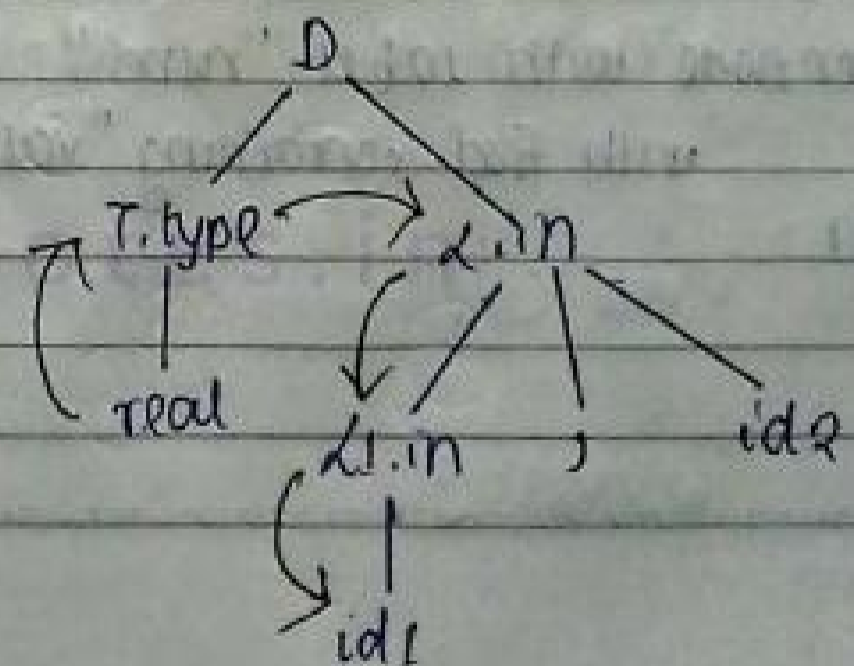 D
T.type L.in
real
L1.in , id2
id1